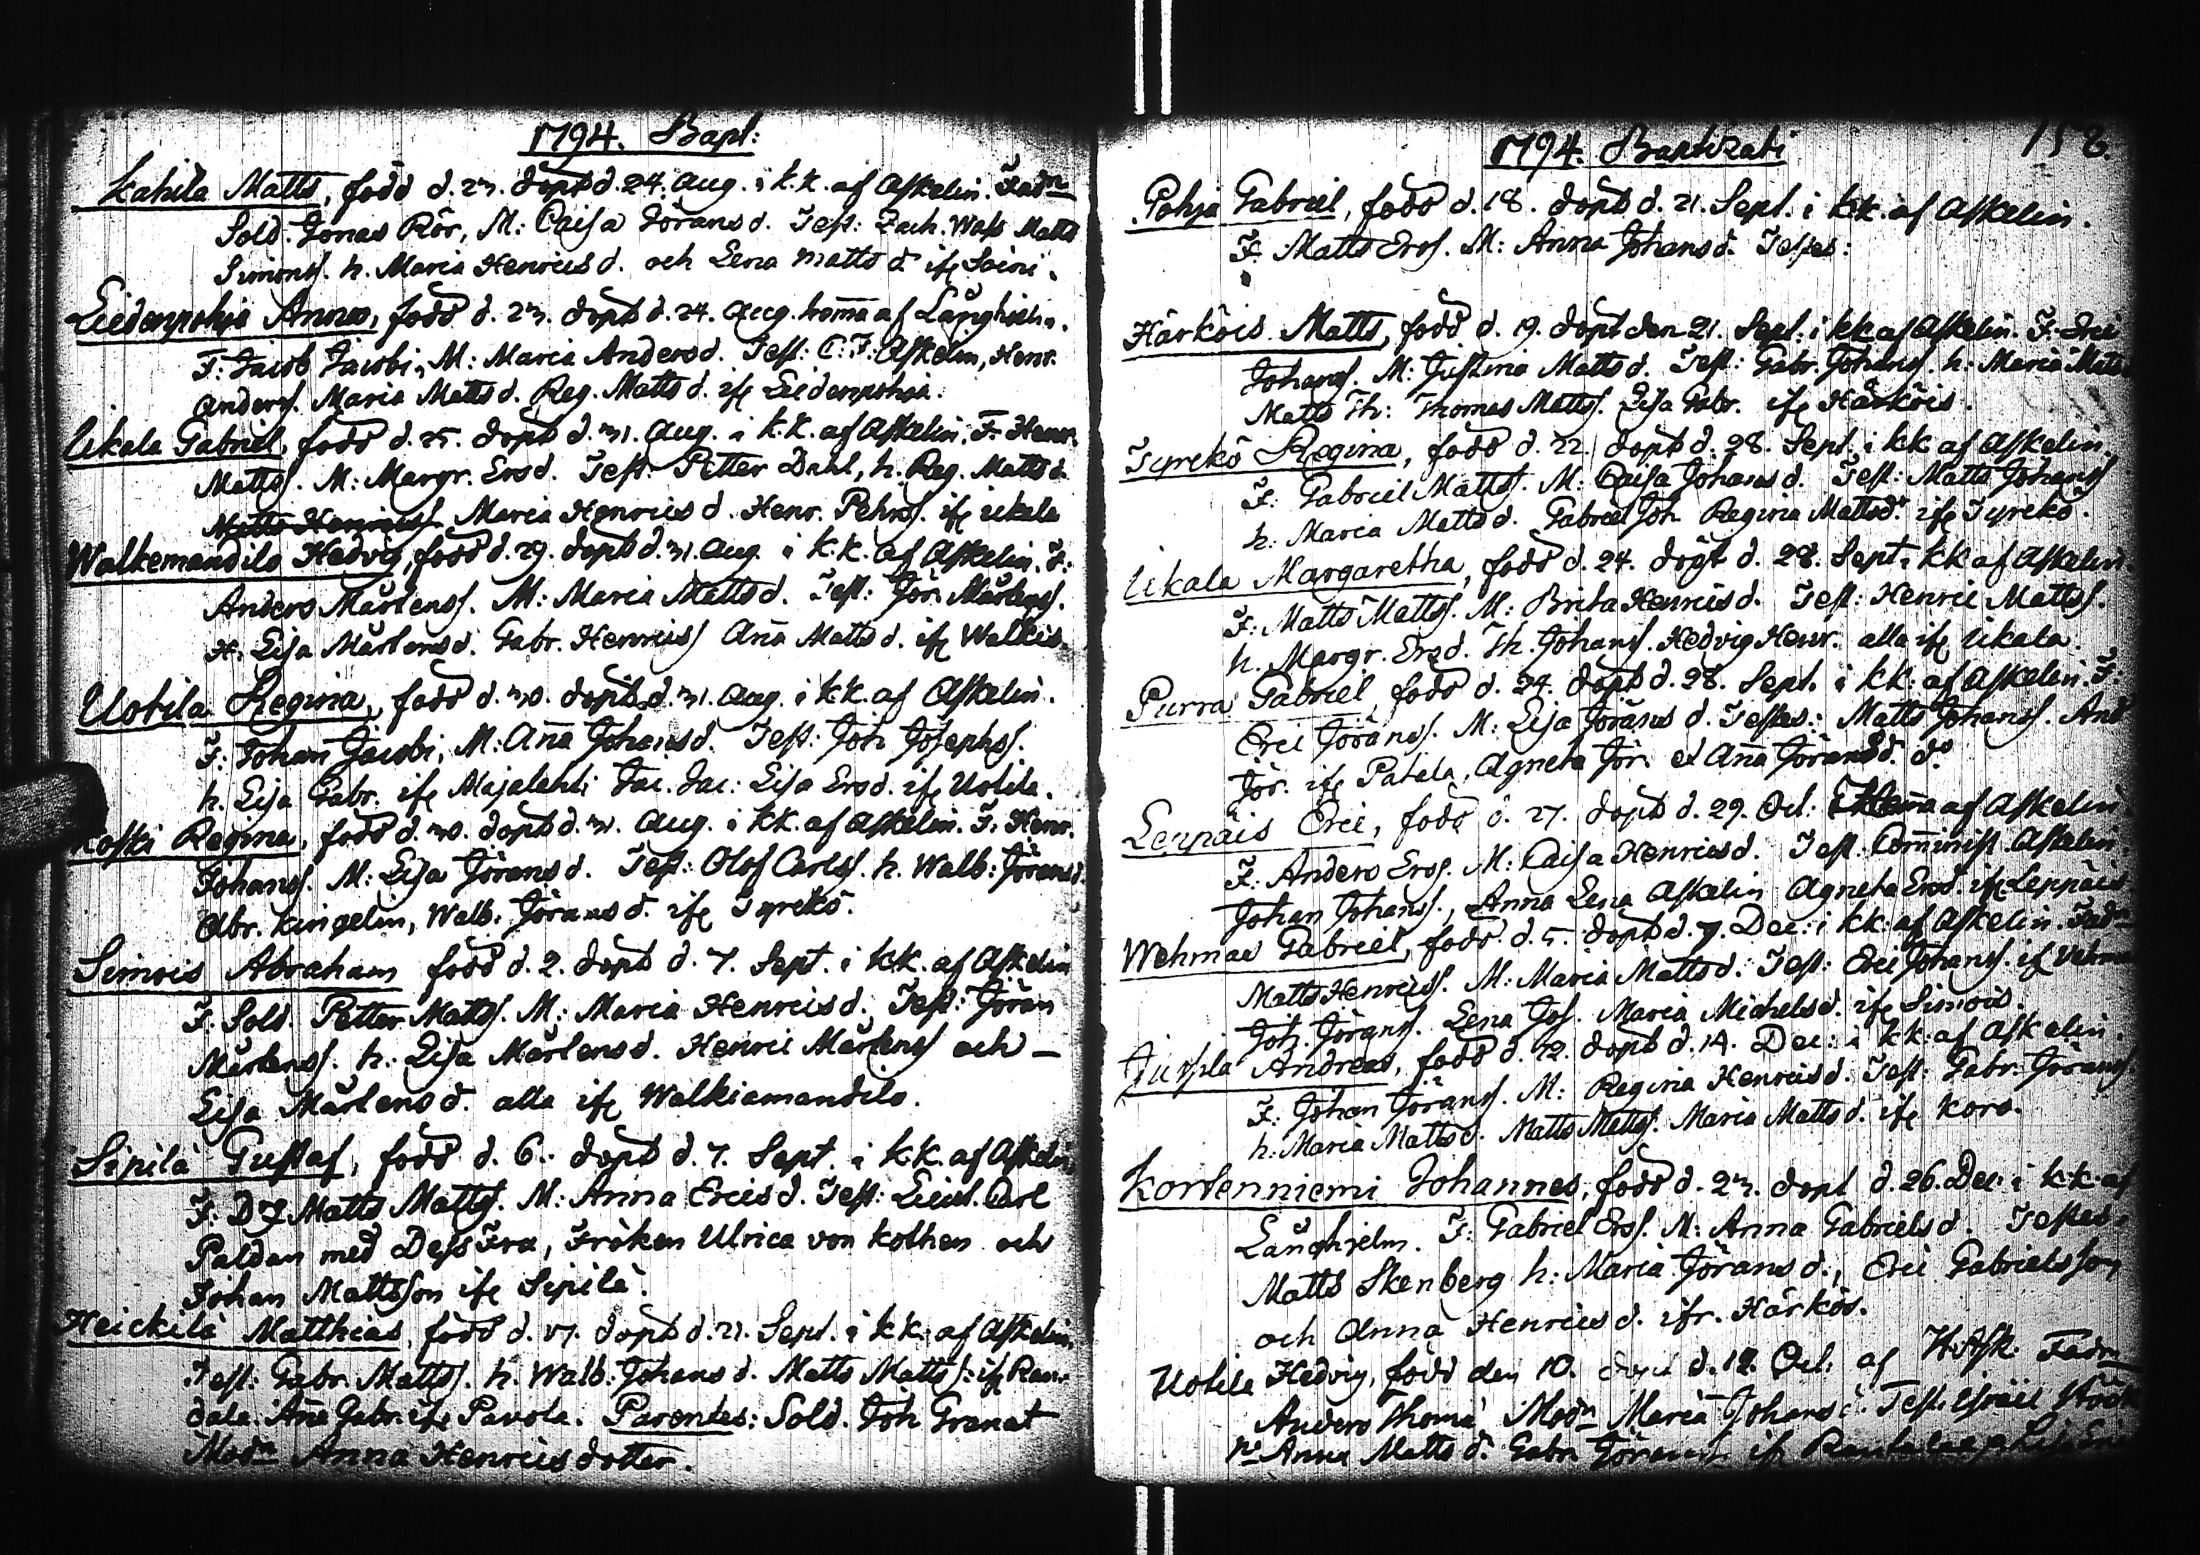 1794. Bapt:
Kahila Matts, född d. 23. döpt d. 24. Aug. i k.k. af Askelin. Fadn
Sold. Jonas Rör, M: Caisa Görans d. Test: Zach. Matts
Simonss. h. Maria Henrics d. och Lena Matts d. ifr Soini.
Liedenpohja Anna, född d. 23. döpt d. 24. Aug. hema af Långhielm.
F: Jacob Jacobi, M: Maria Anders d. Test: C: F: Askelin, Henr.
Anderss. Maria Matts d. Reg. Matts d. ifr Liedenpohja.
Ukala Gabriel, född d. 25. döpt d. 31. Aug. i k.k. af Askelin. F. Henr.
Mattss. M: Margr. Ers d. Test: Petter Dahl, h. Reg. Matts d.
Matts Henricss Maria Henrics d. Henr. Pehrss. ifr Ukala
Walkemandilo Hedvig, född d. 29. döpt d. 31. Aug. i k.k. af Askelin. F:
Anders Mårtenss. M: Maria Matts d. Test: Jör. Mårtenss.
H. Lisa Mårtens d. Gabr. Henricss Aña Matts d. ifr Walkia.
Uotila Regina, född d. 30. döpt d. 31. Aug. i k.k. af Askelin.
F: Johan Jacobi, M: Aña Johans d. Test: Joh Josephss.
h. Lisa Gabr. ifr Majalahti Jac. Jac: Lisa Ers d. ifr Uotila.
Koski Regina, född d. 30. döpt d. 31. Aug. i k.k. af Askelin. F. Henr.
Johanss. M: Lisa Jörans d. Test: Olof Carlss. h. Walb: Jörans d.
Abr. Kingelin, Walb: Jörans d. ifr Tyrekö.
Simois Abraham född d. 2. döpt d. 7. Sept. i k.k. af Askelin
F. Sold. Petter Mattss. M: Maria Henrics d. Test: Jöran
Mårtenss. h: Lisa Mårtens d. Henric Mårtenss och –
Lisa Mårtens d. alla ifr Walkiamandilo.
Sipilä Gustaf, född d. 6. döpt d. 7. Sept. i k.k. af Askelin,
F. Matts Mattss. M: Anna Erics d. Test: Lieut. Carl
Paldan med Dess Fru, Fröken Ulrica von Kothen och
Johan Mattsson ifr Sipilä.
Heickilä Matthias, född d. 17. döpt d. 21. Sept. i k.k. af Askelin,
Test: Gabr. Mattss. h. Walb. Johans d. Matts Mattss: ifr Ran-
dala. Aña Gabr. ifr Pavola. Parentes: Sold. Joh Granat
Modn Anna Henricsdotter.
1794. Baptizati
158.
Pohja Gabriel, född d. 18. döpt d. 21. Sept. i k.k. af Askelin.
F. Matts Erss. M: Anna Johans d. Testes:
Härköis Matts, född d. 19. döpt den 21. Sept. i k.k af Askelin. F: Eric
Johanss. M: Justina Matts d. Test: Gabr. Johanss. h: Maria Matts
Matts Th: Thomas Mattss. Lisa Gabr. ifr Härköis.
Tyrekö Regina, född d. 22. döpt d. 28. Sept. i k.k af Askelin.
F: Gabriel Mattss. M: Caisa Johans d. Test: Matts Johanss
h: Maria Matts d. Gabriel Joh. Regina Matts d: ifr Tyrekö.
Ukala Margaretha, född d. 24. döpt d. 28. Sept i k.k af Askelin
F: Matts Mattss. M: Brita Henrics d. Test: Henric Mattss.
h. Margr. Ers d. Th. Johanss. Hedvig Henr. alla ifr Ukala.
Purra Gabriel, född d. 24. döpt d. 28. Sept. i k.k. af Askelin. F:
Eric Jöranss. M: Lisa Jörans d. Testes: Matts Johanss. And
Jör. ifr Patala, Agneta Jör. et Aña Jörans d. do
Leppäis Eric, född d. 27. döpt d. 29. Oct: Hema af Askelin
F: Anders Erss. M: Caisa Henrics d. Test: Comminist. Askelin,
Johan Johanss., Anna Lena Askelin Agneta Ers d. ifr Leppäis
Wehmae Gabriel, född d. 5. döpt d. 7. Dec: i k.k. af Askelin. Fadn
Matts Henricss. M: Maria Matts d. Test: Eric Johanss. if Vehma
Joh. Jöranss. Lena Jos. Maria Michels d. ifr Simois.
Juspila Andreas, född d. 12. döpt d. 14. Dec: i k.k. af Askelin.
F. Johan Jöranss. M: Regina Henrics d. Test: Gabr: Jöranss.
h: Maria Matts d. Matts Mattss. Maria Matts d. ifr Koro.
Kortenniemi Johannes, född d. 23. döpt d. 26. Dec: i k.k. af
Långhjelm. F: Gabriel Erss. M: Anna Gabriels d. Testes:
Matts Skenberg h: Maria Jörans d., Eric Gabrielsson
och Anna Henrics d. ifr. Härkös.
Uotila Hedvig, född den 10. döpt d. 12. Oct: af H. Ask. Fadn
Anders Thomæ Modn Maria Johans d. Test: Israel
h: Anna Matts d. Gabr. Jöranss ifr